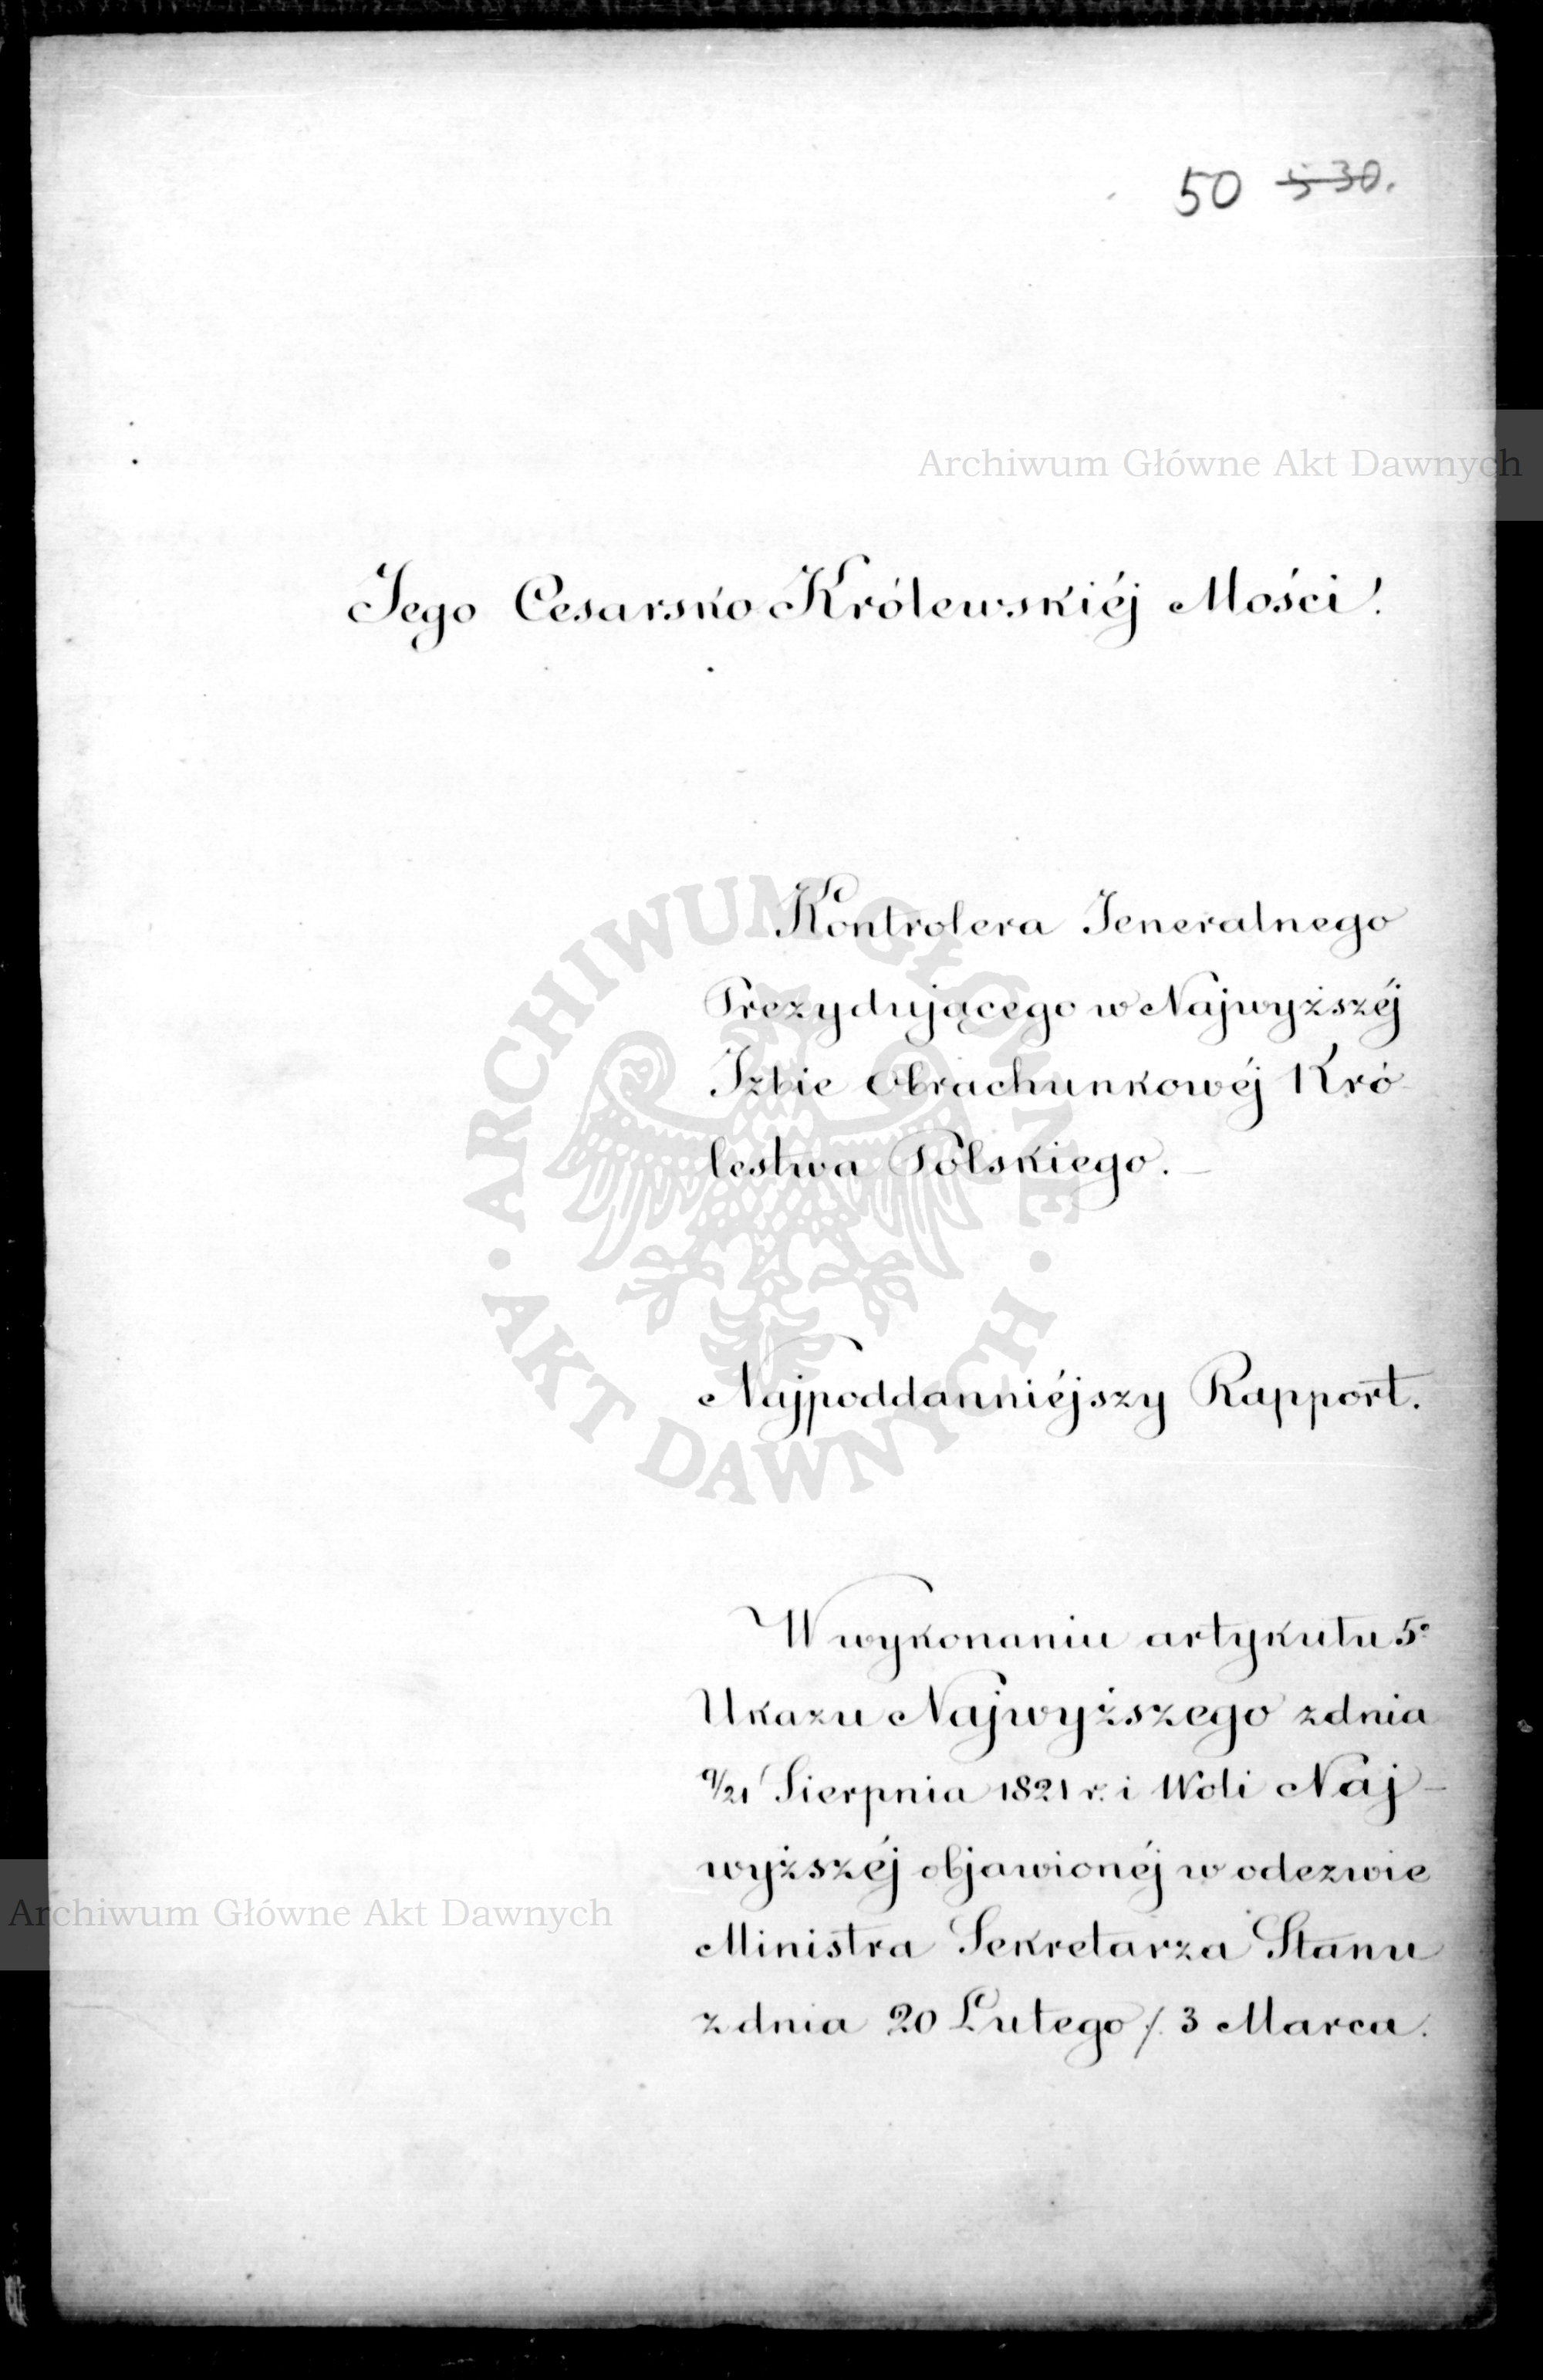 50 530.
Archiwum Główne Akt Dawnych
Jego Cesarsko Królewskiéj Mości!
Kontrolera Jeneralnego
Prezydującego w Najwyższéj
Izbie Obrachunkowéj Kró
lestwa Polskiego.
ARCHIWUM GŁÓWNE AKT DAWNYCH
Najpoddanniéjszy Rapport.
W wykonaniu artykułu 5º
Ukazu Najwyższego z dnia
9/21 Sierpnia 1821 r. i Woli Naj-
wyższéj objawionéj w odezwie
Archiwum Główne Akt Dawnych
Ministra Sekretarza Stanu
z dnia 20 Lutego /. 3 Marca.